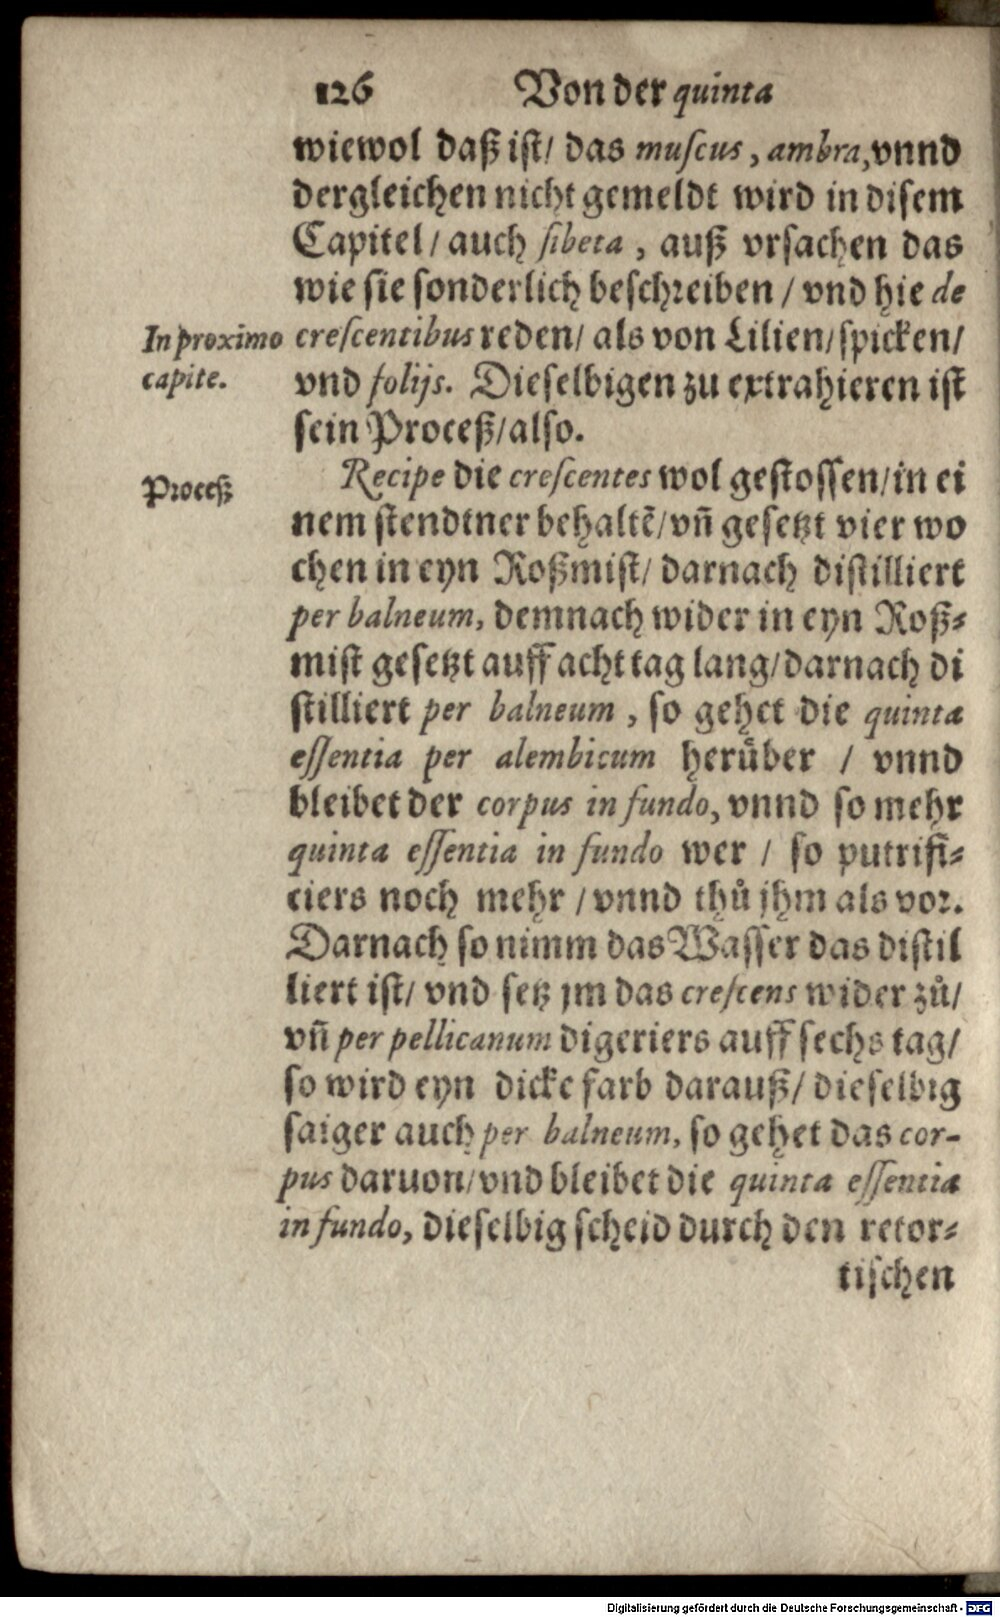 126 Von der quinta
wiewol daß ist/ das muscus, ambra, vnnd
dergleichen nicht gemeldt wird in disem
Capitel/ auch sibeta, auß vrsachen das
wie sie sonderlich beschreiben / vnd hie de
In proximo capite.
crescentibus reden/ als von Lilien/ spicken/
vnd folijs. Dieselbigen zu extrahieren ist
sein Proceß/ also.
Proceß
Recipe die crescentes wol gestossen/ in ei
nem stendtner behaltẽ/ vñ gesetzt vier wo
chen in eyn Roßmist/ darnach distilliert
per balneum, demnach wider in eyn Roß⸗
mist gesetzt auff acht tag lang/ darnach di
stilliert per balneum, so gehet die quinta
essentia per alembicum herůber / vnnd
bleibet der corpus in fundo, vnnd so mehr
quinta essentia in fundo wer / so putrifi⸗
ciers noch mehr / vnnd thů jhm als vor.
Darnach so nimm das Wasser das distil
liert ist/ vnd setz jm das crescens wider zů/
vñ per pellicanum digeriers auff sechs tag/
so wird eyn dicke farb darauß/ dieselbig
saiger auch per balneum, so gehet das cor-
pus daruon/ vnd bleibet die quinta essentia
in fundo, dieselbig scheid durch den retor⸗
tischen
Digitalisierung gefördert durch die Deutsche Forschungsgemeinschaft - DFG